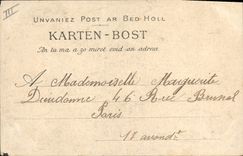 III
UNVANIEZ POST AR BED-HOLL
KARTEN-BOST
An tu ma a zo miret evid an adres
A Mademoiselle Marguerite
Dieudonné 46 Rue Brunel
Paris
17 arrondt